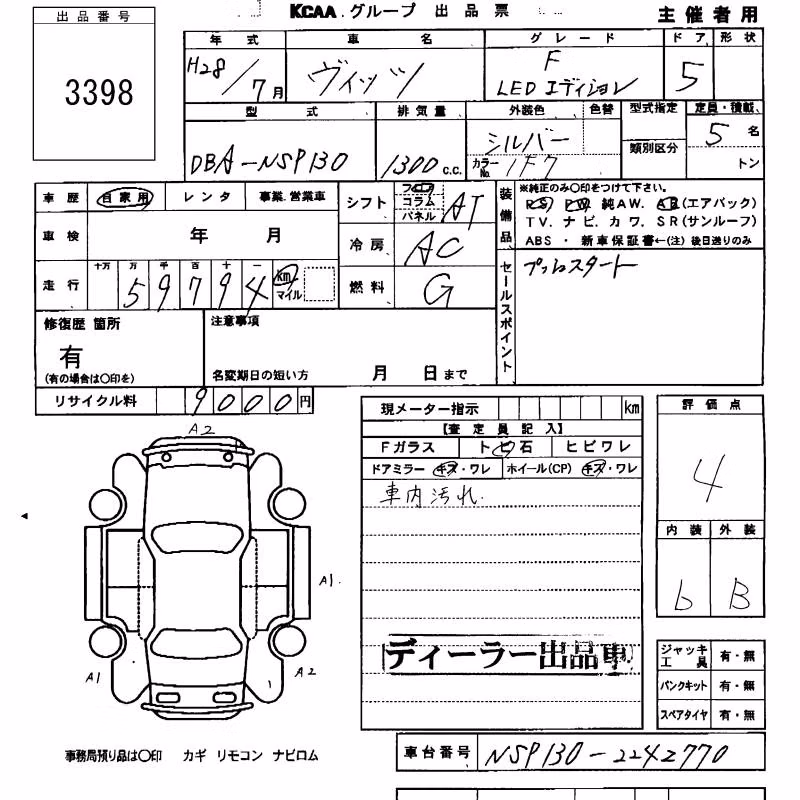 KCAA グループ 出品票
主催者用
出品番号
3398
年式 車名 グレード ドア 形状
H28/7月 ヴィッツ F LEDエディション 5
型式 排気量 外装色 色替 型式指定 定員・積載
類別区分
DBA-NSP130 1300c.c. シルバー カラーNo. 1F7 5名
トン
車歴 自家用 レンタ 事業.営業車
シフト フロア コラム パネル AT
装備品
※純正のみ〇印をつけて下さい。
PS. PW. 純AW. AB(エアバック)
TV. ナビ. カワ. SR(サンルーフ)
ABS ・ 新車保証書←(注) 後日送りのみ
車検 年 月
冷房 AC
走行 十万 万 千 百 十 一
59794 km マイル
燃料 G
セールスポイント
プッシュスタート
修復歴 箇所
有
(有の場合は〇印を)
注意事項
名変期日の短い方 月 日まで
リサイクル料 9000円
現メーター指示 km
【査定員記入】
Fガラス トビ石 ヒビワレ
ドアミラー キズ・ワレ ホイール(CP) キズ・ワレ
車内汚れ.
評価点
4
内装 外装
b B
A2
A1.
A1
A2
1
ディーラー出品車
ジャッキ工具 有・無
パンクキット 有・無
スペアタイヤ 有・無
事務局預り品は〇印 カギ リモコン ナビロム
車台番号 NSP130-2242770